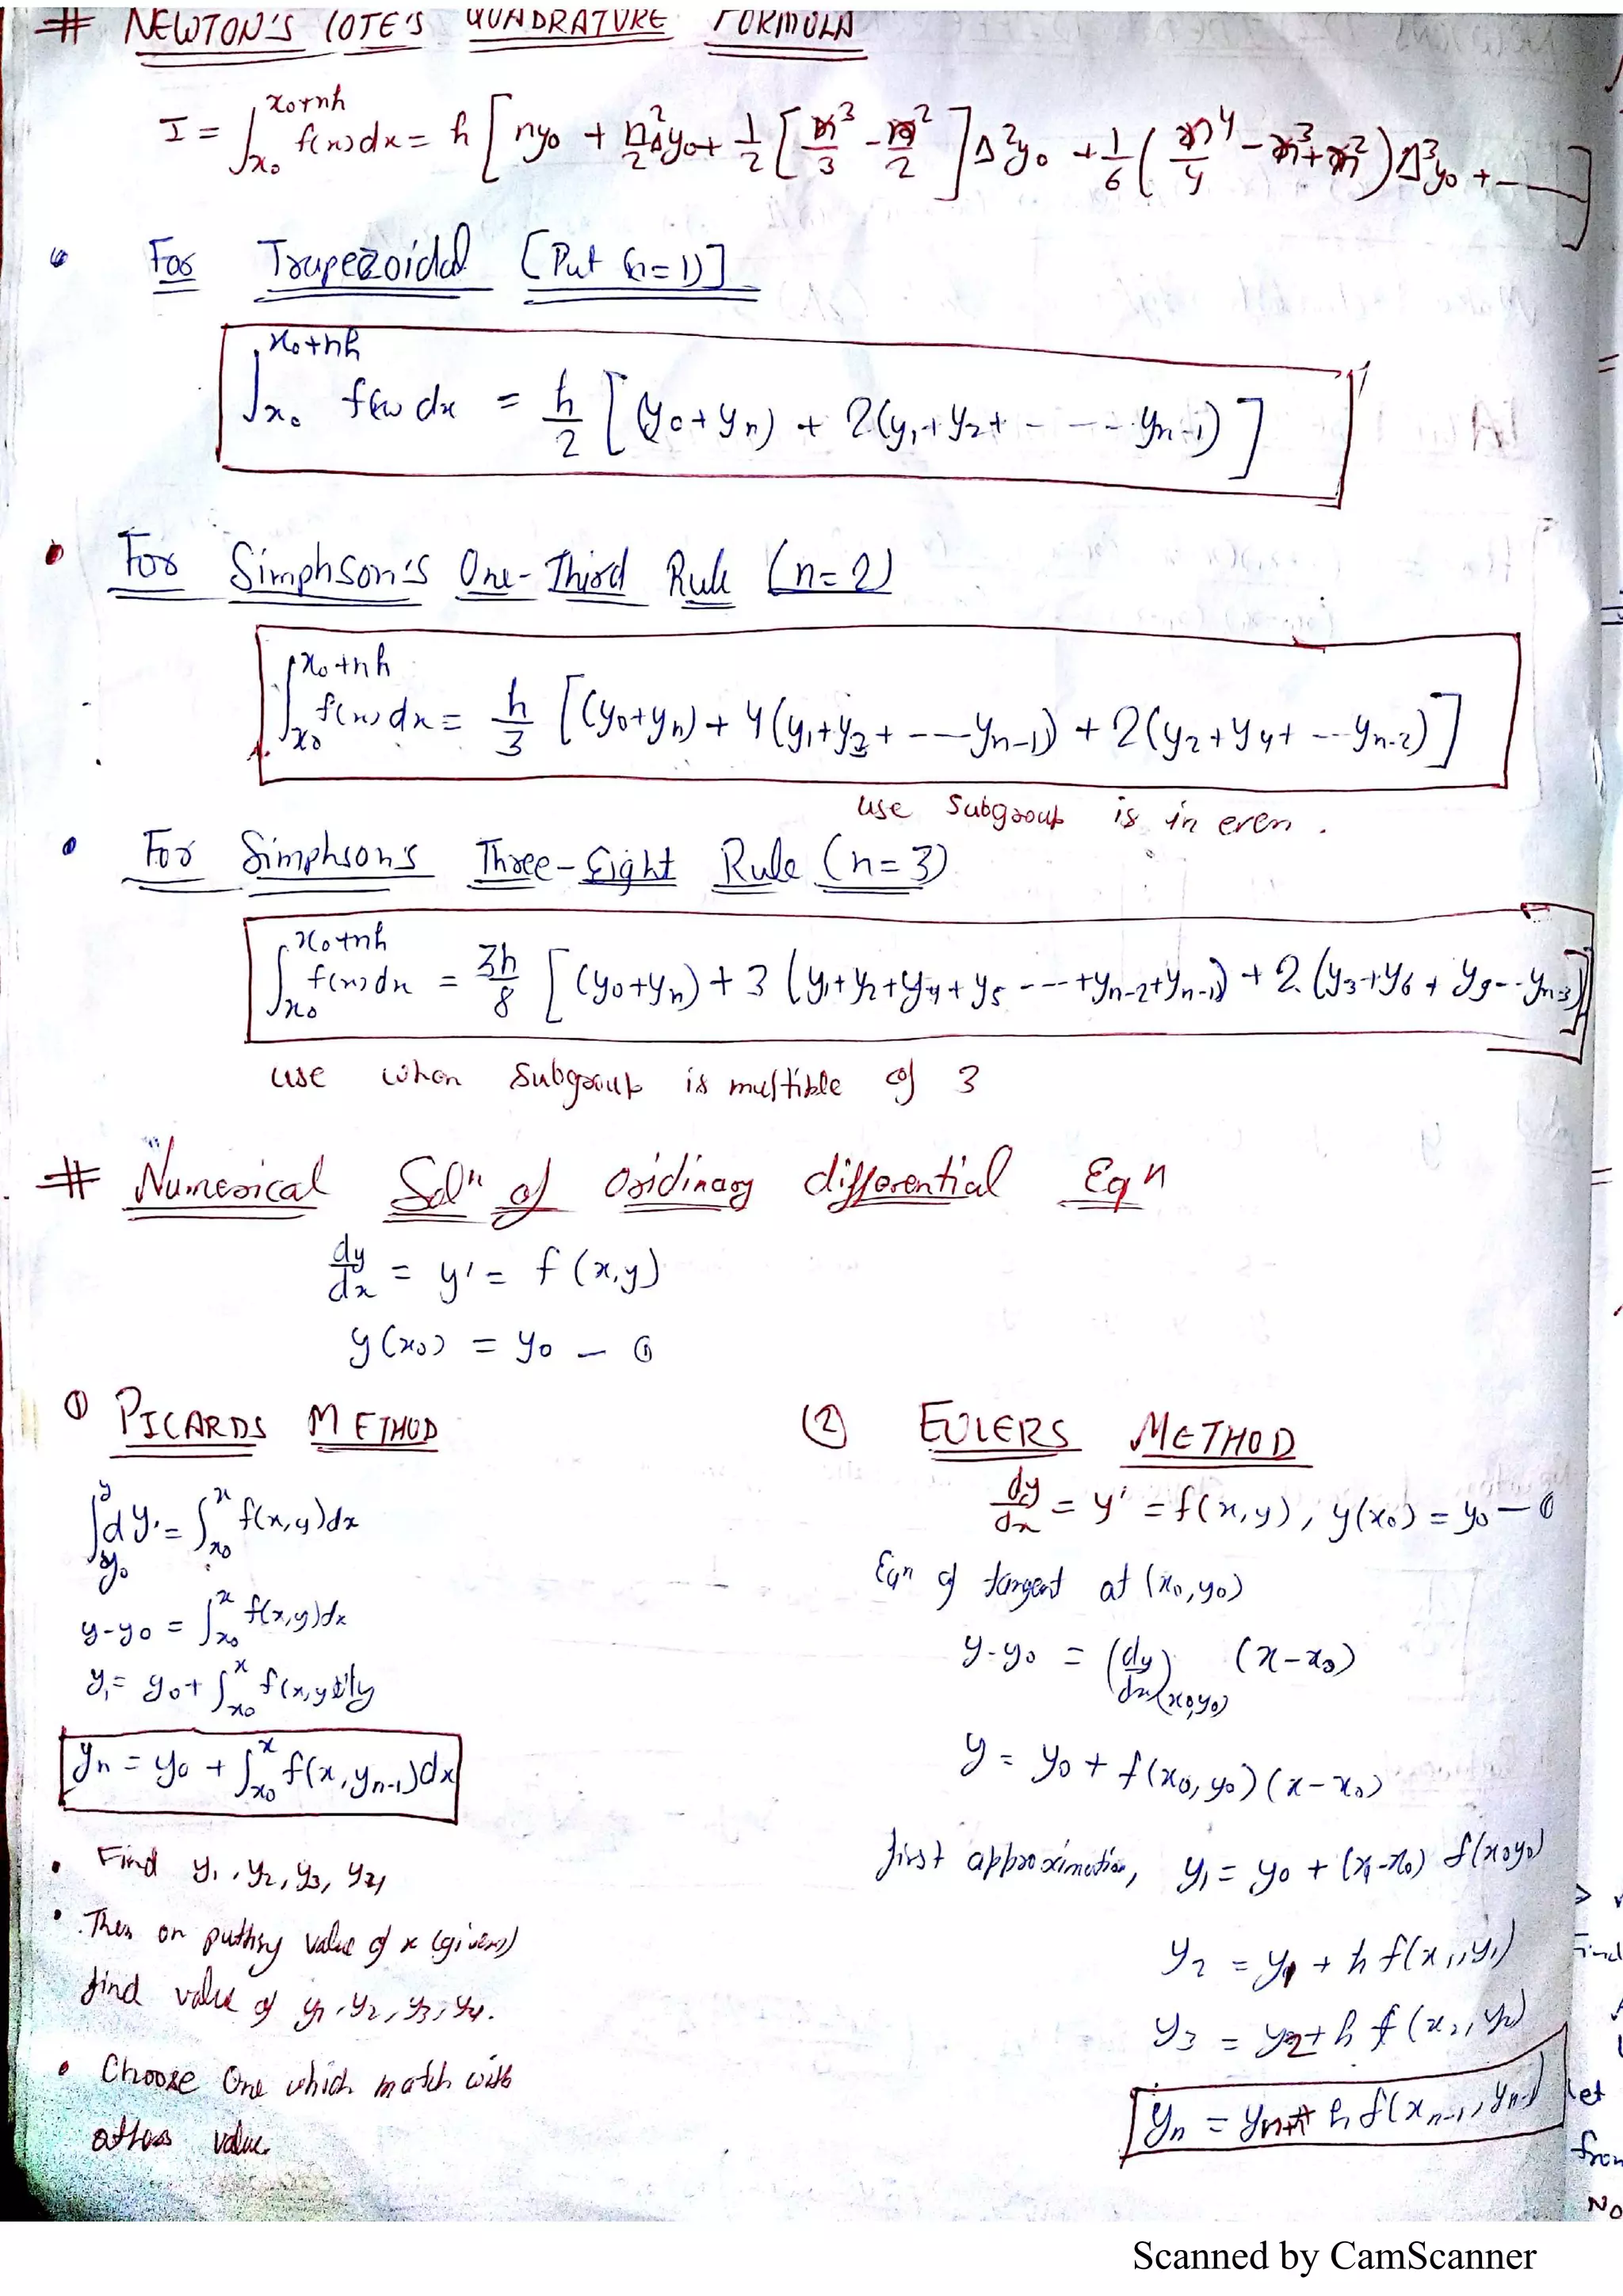 # NEWTON'S COTE'S QUADRATURE FORMULA
I = ∫_{x0}^{x0+nh} f(x)dx = h [ny0 + n²/2 Δy0 + 1/2 [n³/3 - n²/2] Δ²y0 + 1/6 (n⁴/4 - n³ + n²) Δ³y0 + ---]
• For Trapezoidal [Put (n=1)]
∫_{x0}^{x0+nh} f(x) dx = h/2 [(y0+yn) + 2(y1+y2+ - - - - yn-1)]
• For Simphson's One-Third Rule (n=2)
∫_{x0}^{x0+nh} f(x) dx = h/3 [(y0+yn) + 4(y1+y3+ ---- yn-1) + 2(y2+y4+ --- yn-2)]
use subgroup is in even.
• For Simphson's Three-Eight Rule (n=3)
∫_{x0}^{x0+nh} f(x) dx = 3h/8 [(y0+yn) + 3(y1+y2+y4+y5 ---- +yn-2+yn-1) + 2.(y3+y6+y9--yn-3)]
use when subgroup is multible of 3
# Numerical Solⁿ of oridinary differential Eqn
dy/dx = y' = f(x,y)
y(x0) = y0 — ①
① PICARDS METHOD
∫_{y0}^{y} dy = ∫_{x0}^{x} f(x,y)dx
y-y0 = ∫_{x0}^{x} f(x,y)dx
y1 = y0 + ∫_{x0}^{x} f(x,y)dy
yn = y0 + ∫_{x0}^{x} f(x, yn-1)dx
• Find y1, y2, y3, y4
• Then on putting value of x (given)
find value of y1, y2, y3, y4.
• Choose One which match with
value.
② EULERS METHOD
dy/dx = y' = f(x,y), y(x0) = y0 — ①
Eqn of tangent at (x0,y0)
y-y0 = (dy/dx)(x0,y0) (x-x0)
y = y0 + f(x0,y0)(x-x0)
first approximation, y1 = y0 + (x1-x0) f(x0y0)
y2 = y1 + h f(x1,y1)
y3 = y2 + h f(x2,y2)
yn = yn-1 + h f(xn-1, yn-1)
Find
let
from
No
Scanned by CamScanner